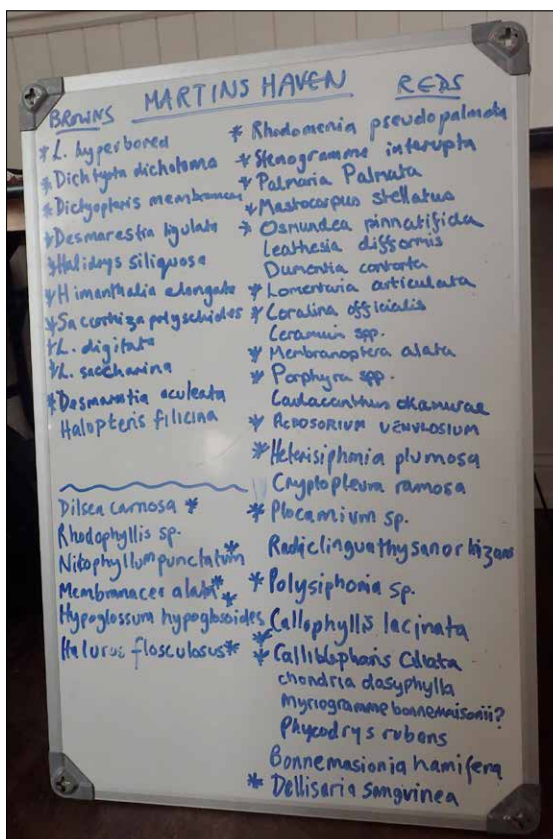 MARTINS HAVEN
BROWNS
* L. hyperborea
* Dichtyota dichotoma
* Dictyopteris membranacea
* Desmarestia ligulata
* Halidrys siliquosa
* Himanthalia elongata
* Saccorhiza polyschides
* L. digitata
* L. saccharina
* Desmarestia aculeata
Halopteris filicina
Dilsea carnosa *
Rhodophyllis sp.
Nitophyllum punctatum *
Membranacea alata *
Hypoglossum hypoglosoides *
Halurus flosculosus *
REDS
* Rhodomenia pseudopalmata
* Stenogramme interupta
* Palmaria Palmata
* Mastocarpus stellatus
* Osmundea pinnatifida
Leathesia difformis
Dumontia contorta
* Lomentaria articulata
* Coralina officialis
Ceramium spp.
* Membranoptera alata
* Porphyra spp.
Caulacanthus okamurae
* ACROSORIUM VENULOSIUM
* Heterisiphonia plumosa
Cryptopleura ramosa
* Plocamium sp.
Radiclinguathysanorhizans
* Polysiphonia sp.
* Callophyllis lacinata
* Calliblepharis Ciliata
chondria dasyphylla
Myriogramme bonnemaisonii?
Phycodrys rubens
Bonnemasionia hamifera
* Dellisaria sanguinea